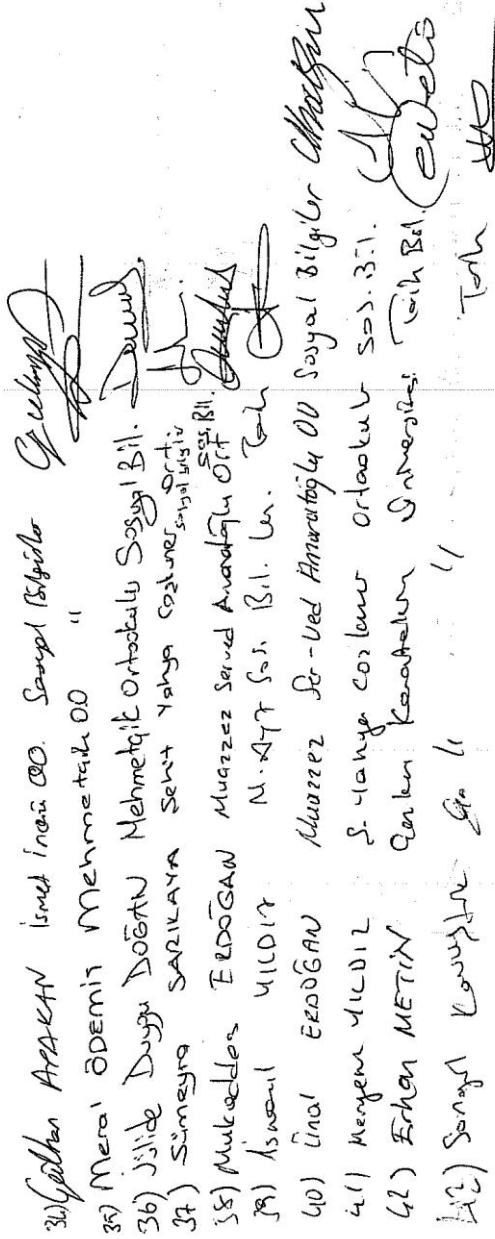 34) Gülhan APAKAN İsmet İnönü OO. Sosyal Bilgiler
35) Meral ÖDEMİŞ Mehmetçik O.O "
36) Jülide Duygu DOĞAN Mehmetçik Ortaokulu Sosyal Bil.
37) Sümeyra SARIKAYA Şehit Yahya Coşkuner Ort. Sosyal bilgiler
38) Mukaddes ERDOĞAN Muazzez Served Amaratoğlu Ort Sos. Bil.
39) İsmail YILDIZ Sos. Bil. Tarih
40) Ünal ERDOĞAN Muazzez Ser-Ved Amaratoğlu OO Sosyal Bilgiler
41) Meryem YILDIZ Ş. Yahya Ortaokulu Sos. Bil.
42) Erhan METİN Çankırı Karatekin Üniversitesi Tarih Böl.
43) Songül " " Tarih